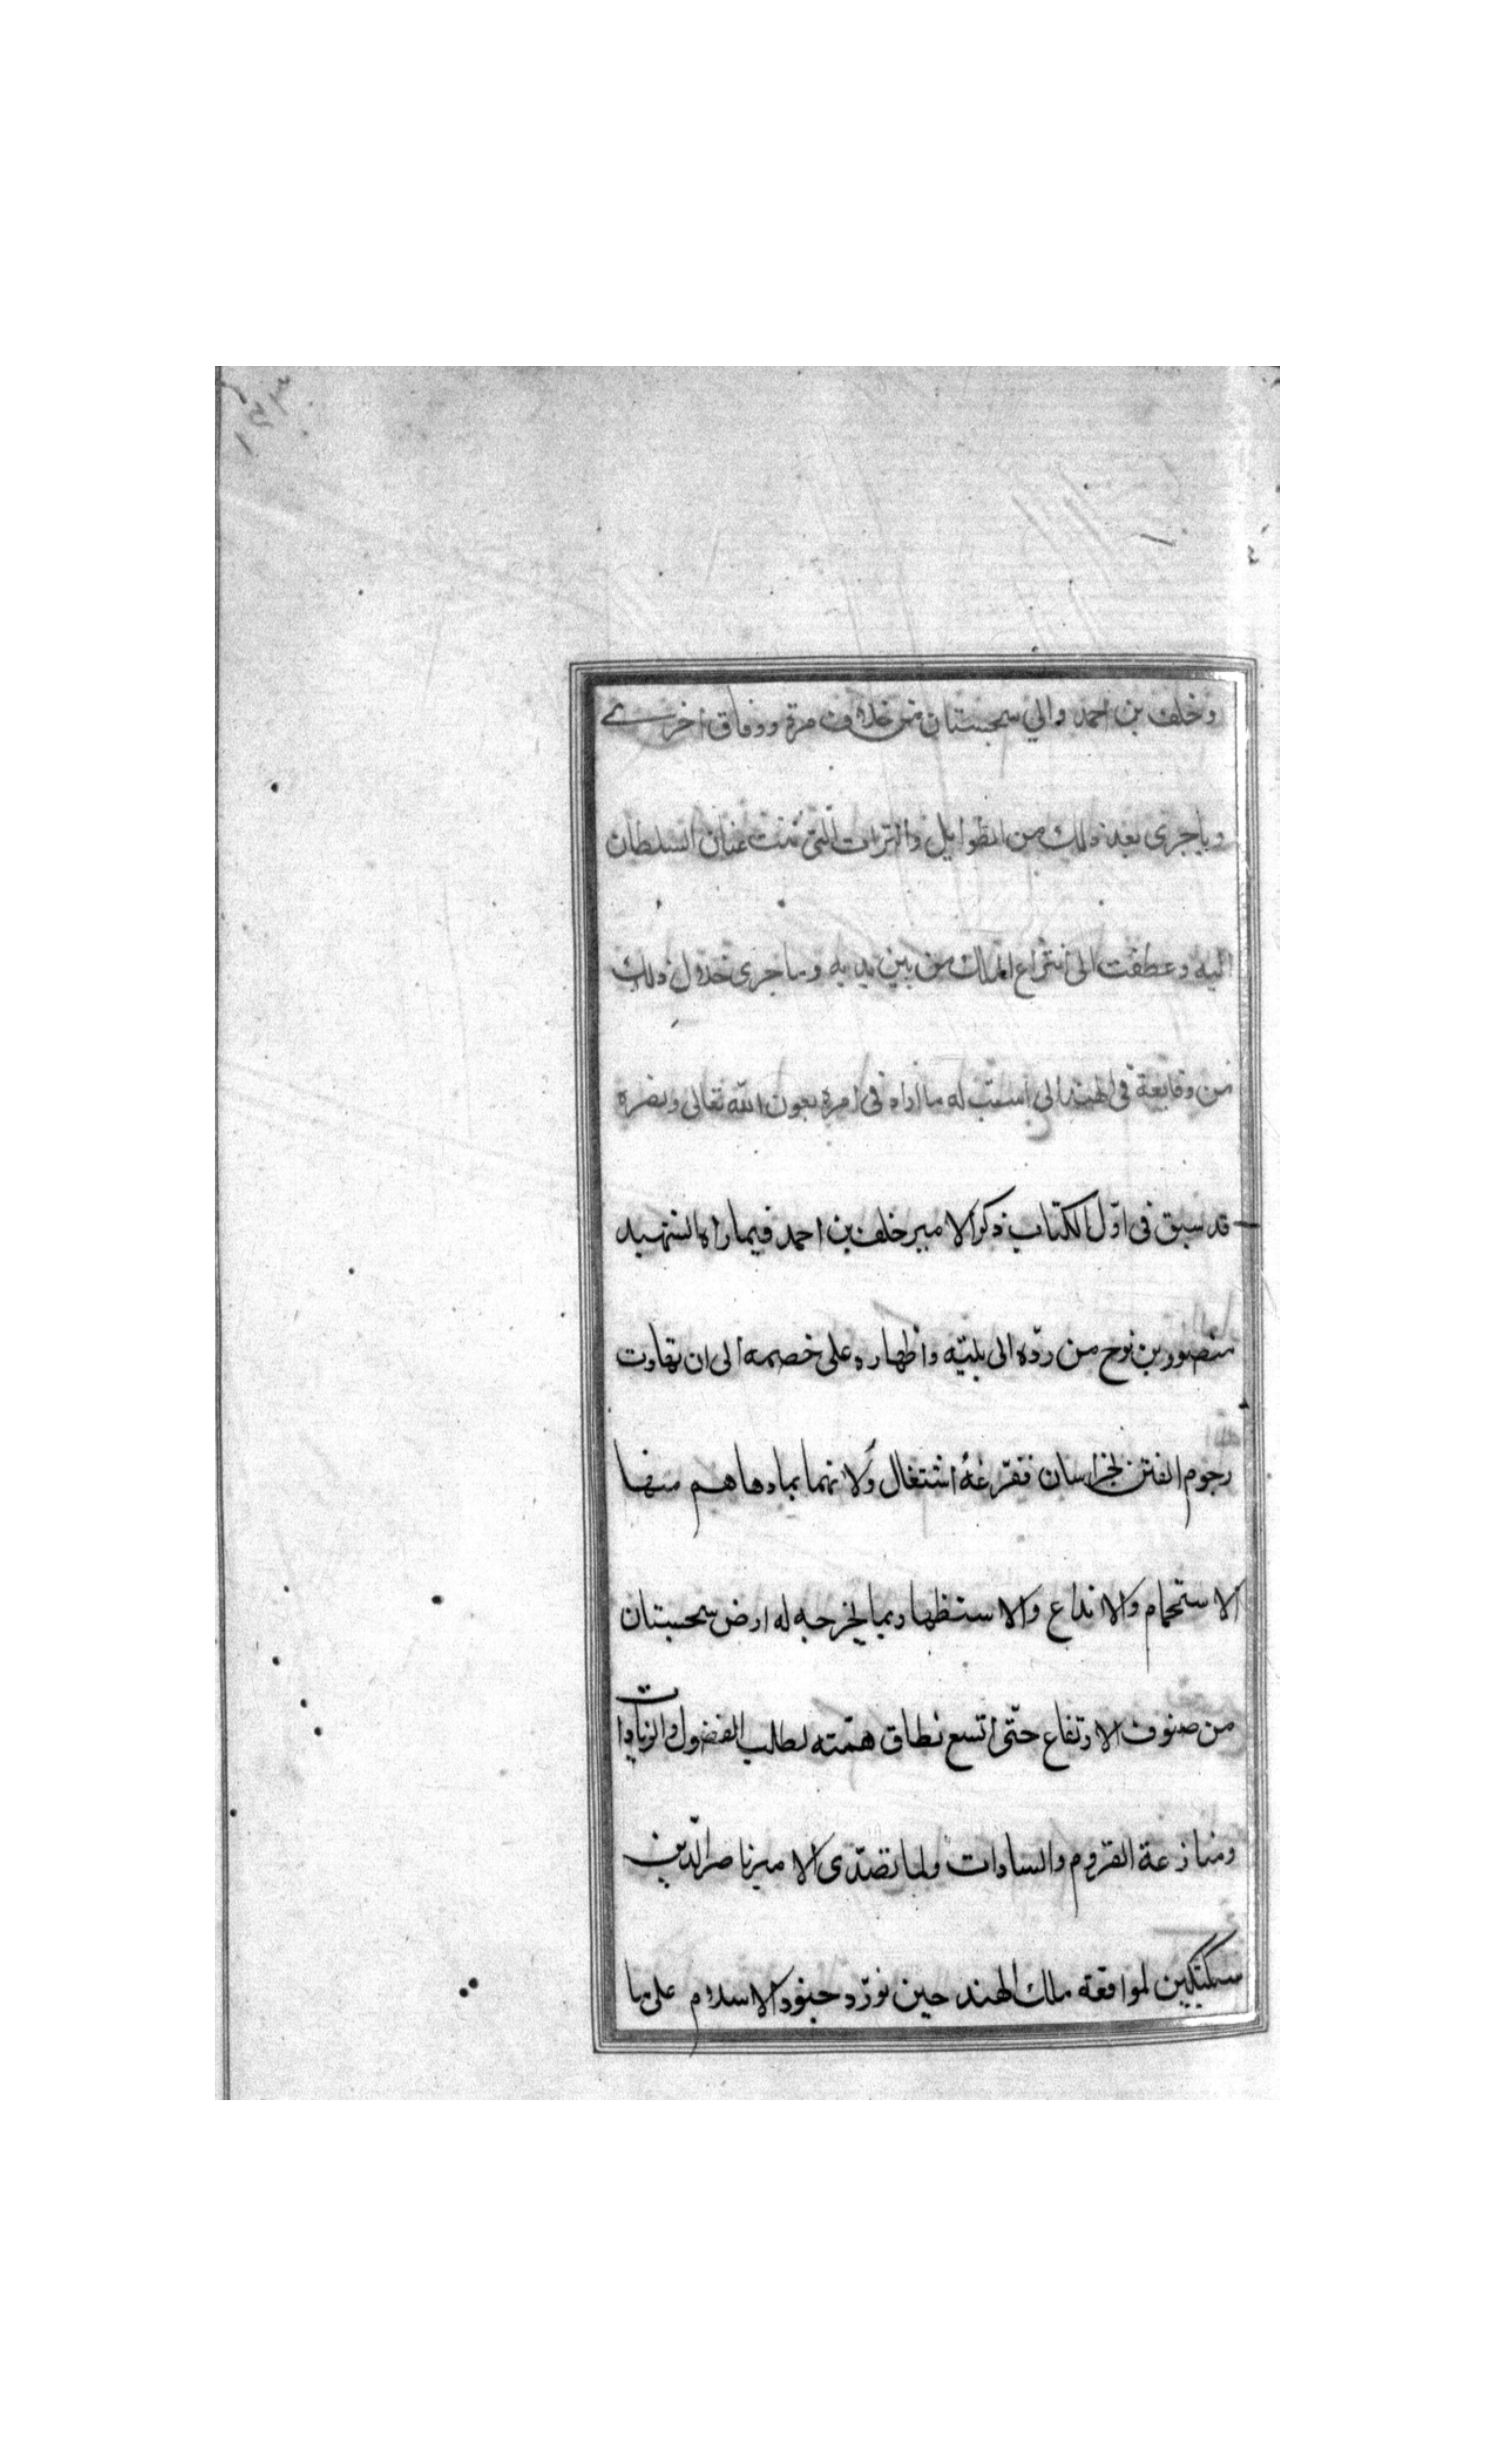 وخلف بن احمد والي سجستان من خلاف مرة ووفاق اخرى
وما جرى بعد ذلك من الطوايل والترات التى ثنت عنان السلطان
اليه وعطفت الى انتزاع الملك من بين يديه وما جرى خلال ذلك
من وقايعة فى الهند الى استتب له ما اراه فى امره بعون الله تعالى ونصره
قد سبق فى اوّل الكتاب ذكر الامير خلف بن احمد فيما راه الشهيد
منصور بن نوح من ردّه الى بليّه واظهاره على خصمه الى ان تهاوت
رجوم الفتن بخراسان فقرغه اشتغال ولاتهما بما دهاهم منها
الاستجمام والاتداع والاستظهار بما يخرجه له ارض سجستان
من صنوف الارتفاع حتّى اتسع نطاق همّته لطلب الفضول والزيادات
ومنازعة القروم والسادات ولما تصدّى الامير ناصر الدّين
سبكتكين لموافقة ملك الهند حين تورّد جنود الاسلام على ما